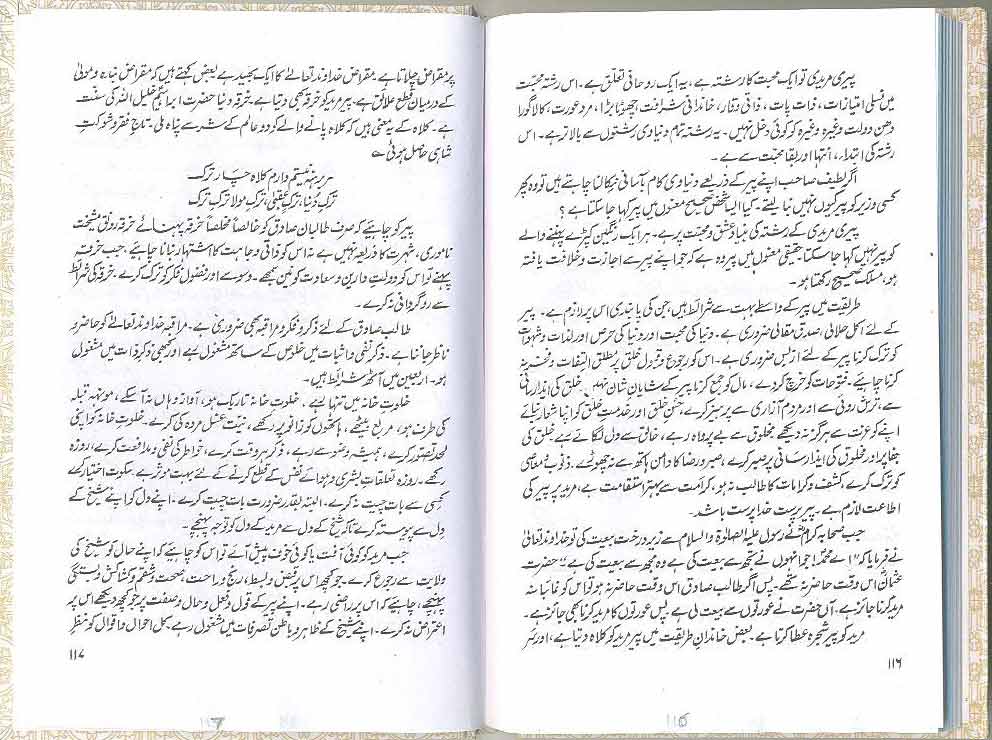 پیری مریدی تو ایک محبت کا رشتہ ہے، یہ ایک روحانی تعلق ہے۔ اس رشتہ محبت
میں نسلی امتیازات، ذات پات، ذاتی وقار، خاندانی شرافت چھوٹا بڑا، مرد عورت، کالا گورا
دھن دولت وغیرہ وغیرہ کو کوئی دخل نہیں۔ یہ رشتہ تمام دنیاوی رشتوں سے بالاتر ہے۔ اس
رشتہ کی ابتداء، انتہا اور بقا محبت سے ہے۔
اگر لطیف صاحب اپنے پیر کے ذریعے دنیاوی کام بآسانی نکالنا چاہتے ہیں تو وہ پھر
کسی وزیر کو پیر کیوں نہیں بنا لیتے۔ کیا ایسا شخص صحیح معنوں میں پیر کہا جا سکتا ہے؟
پیری مریدی کے رشتہ کی بنیاد عشق و محبت پر ہے۔ ہر ایک رنگین کپڑے پہننے والے
کو پیر نہیں کہا جا سکتا۔ حقیقی معنوں میں پیر وہ ہے کہ جو اپنے پیر سے اجازت و خلافت یافتہ
ہو، مسلک صحیح رکھتا ہو۔
طریقت میں پیر کے واسطے بہت سے شرائط ہیں، جن کی پابندی اس پر لازم ہے۔ پیر
کے لئے اکل حلالی، صدق مقالی ضروری ہے۔ دنیا کی محبت اور دنیا کی حرص اور لذات و شہوات
کو ترک کرنا پیر کے لئے از بس ضروری ہے۔ اس کو رجوع و قبول خلق پر مطلق التفات و فخر نہ
کرنا چاہئے۔ فتوحات کو خرچ کر دے، مال کو جمع کرنا پیر کے شایان شان نہیں۔ خلق کی ایذا رسانی
سے، ترش روئی سے اور مردم آزاری سے پرہیز کرے، حسن خلق اور خدمت خلق کو اپنا شعار بنائے
اپنے کو عزت سے ہرگز نہ دیکھے مخلوق سے بے پرواہ رہے، خالق سے دل لگائے رہے خلق کی
جفا پر اور مخلوق کی ایذا رسانی پر صبر کرے، صبر و رضا کا دامن ہاتھ سے نہ چھوڑے۔ ذنوب معاصی
کو ترک کرے، کشف و کرامات کا طالب نہ ہو، کرامت سے بہتر استقامت ہے، مرید پر پیر کی
اطاعت لازم ہے۔ پیر پرست خدا پرست باشد۔
جب صحابہ کرامؓ نے رسول علیہ الصلوٰۃ والسلام سے زیر درخت بیعت کی تو خداوند تعالیٰ
نے فرمایا کہ "اے محمدؐ! جو انہوں نے تجھ سے بیعت کی ہے وہ مجھ سے بیعت کی ہے" حضرت
عثمانؓ اس وقت حاضر نہ تھے۔ پس اگر طالب صادق اس وقت حاضر نہ ہو تو اس کو غائبانہ
مرید کرنا جائز ہے۔ آں حضرت نے عورتوں سے بیعت لی ہے۔ پس عورتوں کا مرید کرنا بھی جائز ہے۔
مرید کو پیر شجرہ عطا کرتا ہے۔ بعض خاندان طریقت میں پیر مرید کو کلاہ دیتا ہے، اور سر
۱۱۶
116
پر مقراض چلاتا ہے۔ مقراض خداوند تعالیٰ کا ایک بھید ہے بعض کہتے ہیں کہ مقراض بندہ و مولیٰ
کے درمیان قطع علائق ہے۔ پیر مرید کو خرقہ بھی دیتا ہے۔ خرقہ دینا حضرت ابراہیم خلیل اللہ کی سنت
ہے۔ کلاہ کے یہ معنی ہیں کہ کلاہ پانے والے کو دو عالم کے شر سے پناہ ملی۔ تاج فقر و شوکت
شاہی حاصل ہوئی ؎
بر برہنہ نیستم دارم کلاہ چہار ترک
ترک دنیا، ترک عقبیٰ، ترک مولا ترک ترک
پیر کو چاہئے کہ صرف طالبان صادق کو خالصاً مخلصاً خرقہ پہنائے خرقہ رونق مشیخت
ناموری، شہرت کا ذریعہ نہیں ہے نہ اس کو ذاتی وجاہت کا اشتہار بنانا چاہئے، جب خرقہ
پہنے تو اس کو دولت دارین و سعادت کونین سمجھے۔ وسوسے اور فضول فکر کو ترک کرے۔ خرقہ کی شرائط
سے روگردانی نہ کرے۔
طالب صادق کے لئے ذکر و فکر و مراقبہ بھی ضروری ہے۔ مراقبہ خداوند تعالیٰ کو حاضر و
ناظر جاننا ہے۔ ذکر نفی و اثبات میں خلوص کے ساتھ مشغول رہے اور کبھی ذکر ذات میں مشغول
ہو۔ اربعین میں آٹھ شرائط ہیں۔
خلوت خانہ میں تنہا رہے۔ خلوت خانہ تاریک ہو، آواز وہاں نہ آ سکے، مونہہ قبلہ
کی طرف ہو، مربع بیٹھے، ہاتھوں کو زانو پر رکھے، نیت غسل مردہ کی کرے۔ خلوت خانہ کو اپنی
لحد تصور کرے، ہمیشہ باوضو رہے، ذکر ہر وقت کرے، خواطر کی نفی و مدافعت کرے، روزہ
رکھے۔ روزہ تعلقات بشری و ہوائے نفس کے قطع کرنے کے لئے بہت مؤثر ہے سکوت اختیار کرے
کسی سے بات چیت نہ کرے۔ البتہ بقدر ضرورت بات چیت کرے۔ اپنے دل کو اپنے شیخ کے
دل سے پیوستہ کرے تاکہ شیخ کے دل سے مرید کے دل کو توجہ پہنچے۔
جب مرید کو کوئی آفت یا کوئی خوف پیش آئے تو اس کو چاہئے کہ اپنے حال کو شیخ کی
ولایت سے رجوع کرے۔ جو کچھ اس پر قبض و بسط، رنج و راحت، صحت و سقم و کشاکش و بستگی
پہنچے، چاہئے کہ اس پر راضی رہے۔ اپنے پیر کے قول و فعل و حال و صفت پر جو کچھ دیکھے اس پر
اعتراض نہ کرے۔ اپنے شیخ کے ظاہر و باطن تصرفات میں مشغول رہے، کل احوال و اقوال کو منظر
۱۱۷
117